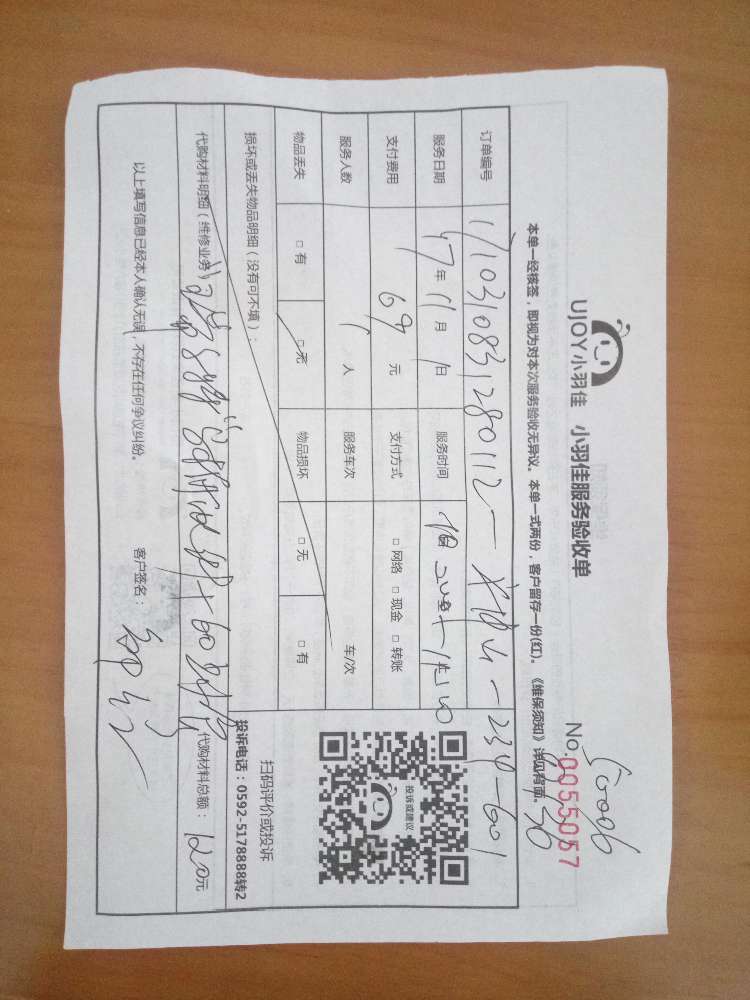 UJOY小羽佳 小羽佳服务验收单
No.0055057
本单一经核签，即视为对本次服务验收无异议。本单一式两份，客户留存一份(红)。《维保须知》详见背面。
订单编号 1710310831280112 234-601
服务日期 17年 11月 1日 服务时间
支付费用 69元 支付方式 □网络 □现金 □转账
服务人数 1人 服务车次 车/次
物品丢失 □有 □无 物品损坏 □无 □有
损坏或丢失物品明细（没有可不填）：
扫码评价或投诉
投诉电话：0592-5178888转2
投诉或建议
代购材料明细（维修业务） 代购材料总额：120元
以上填写信息已经本人确认无误，不存在任何争议纠纷。 客户签名：